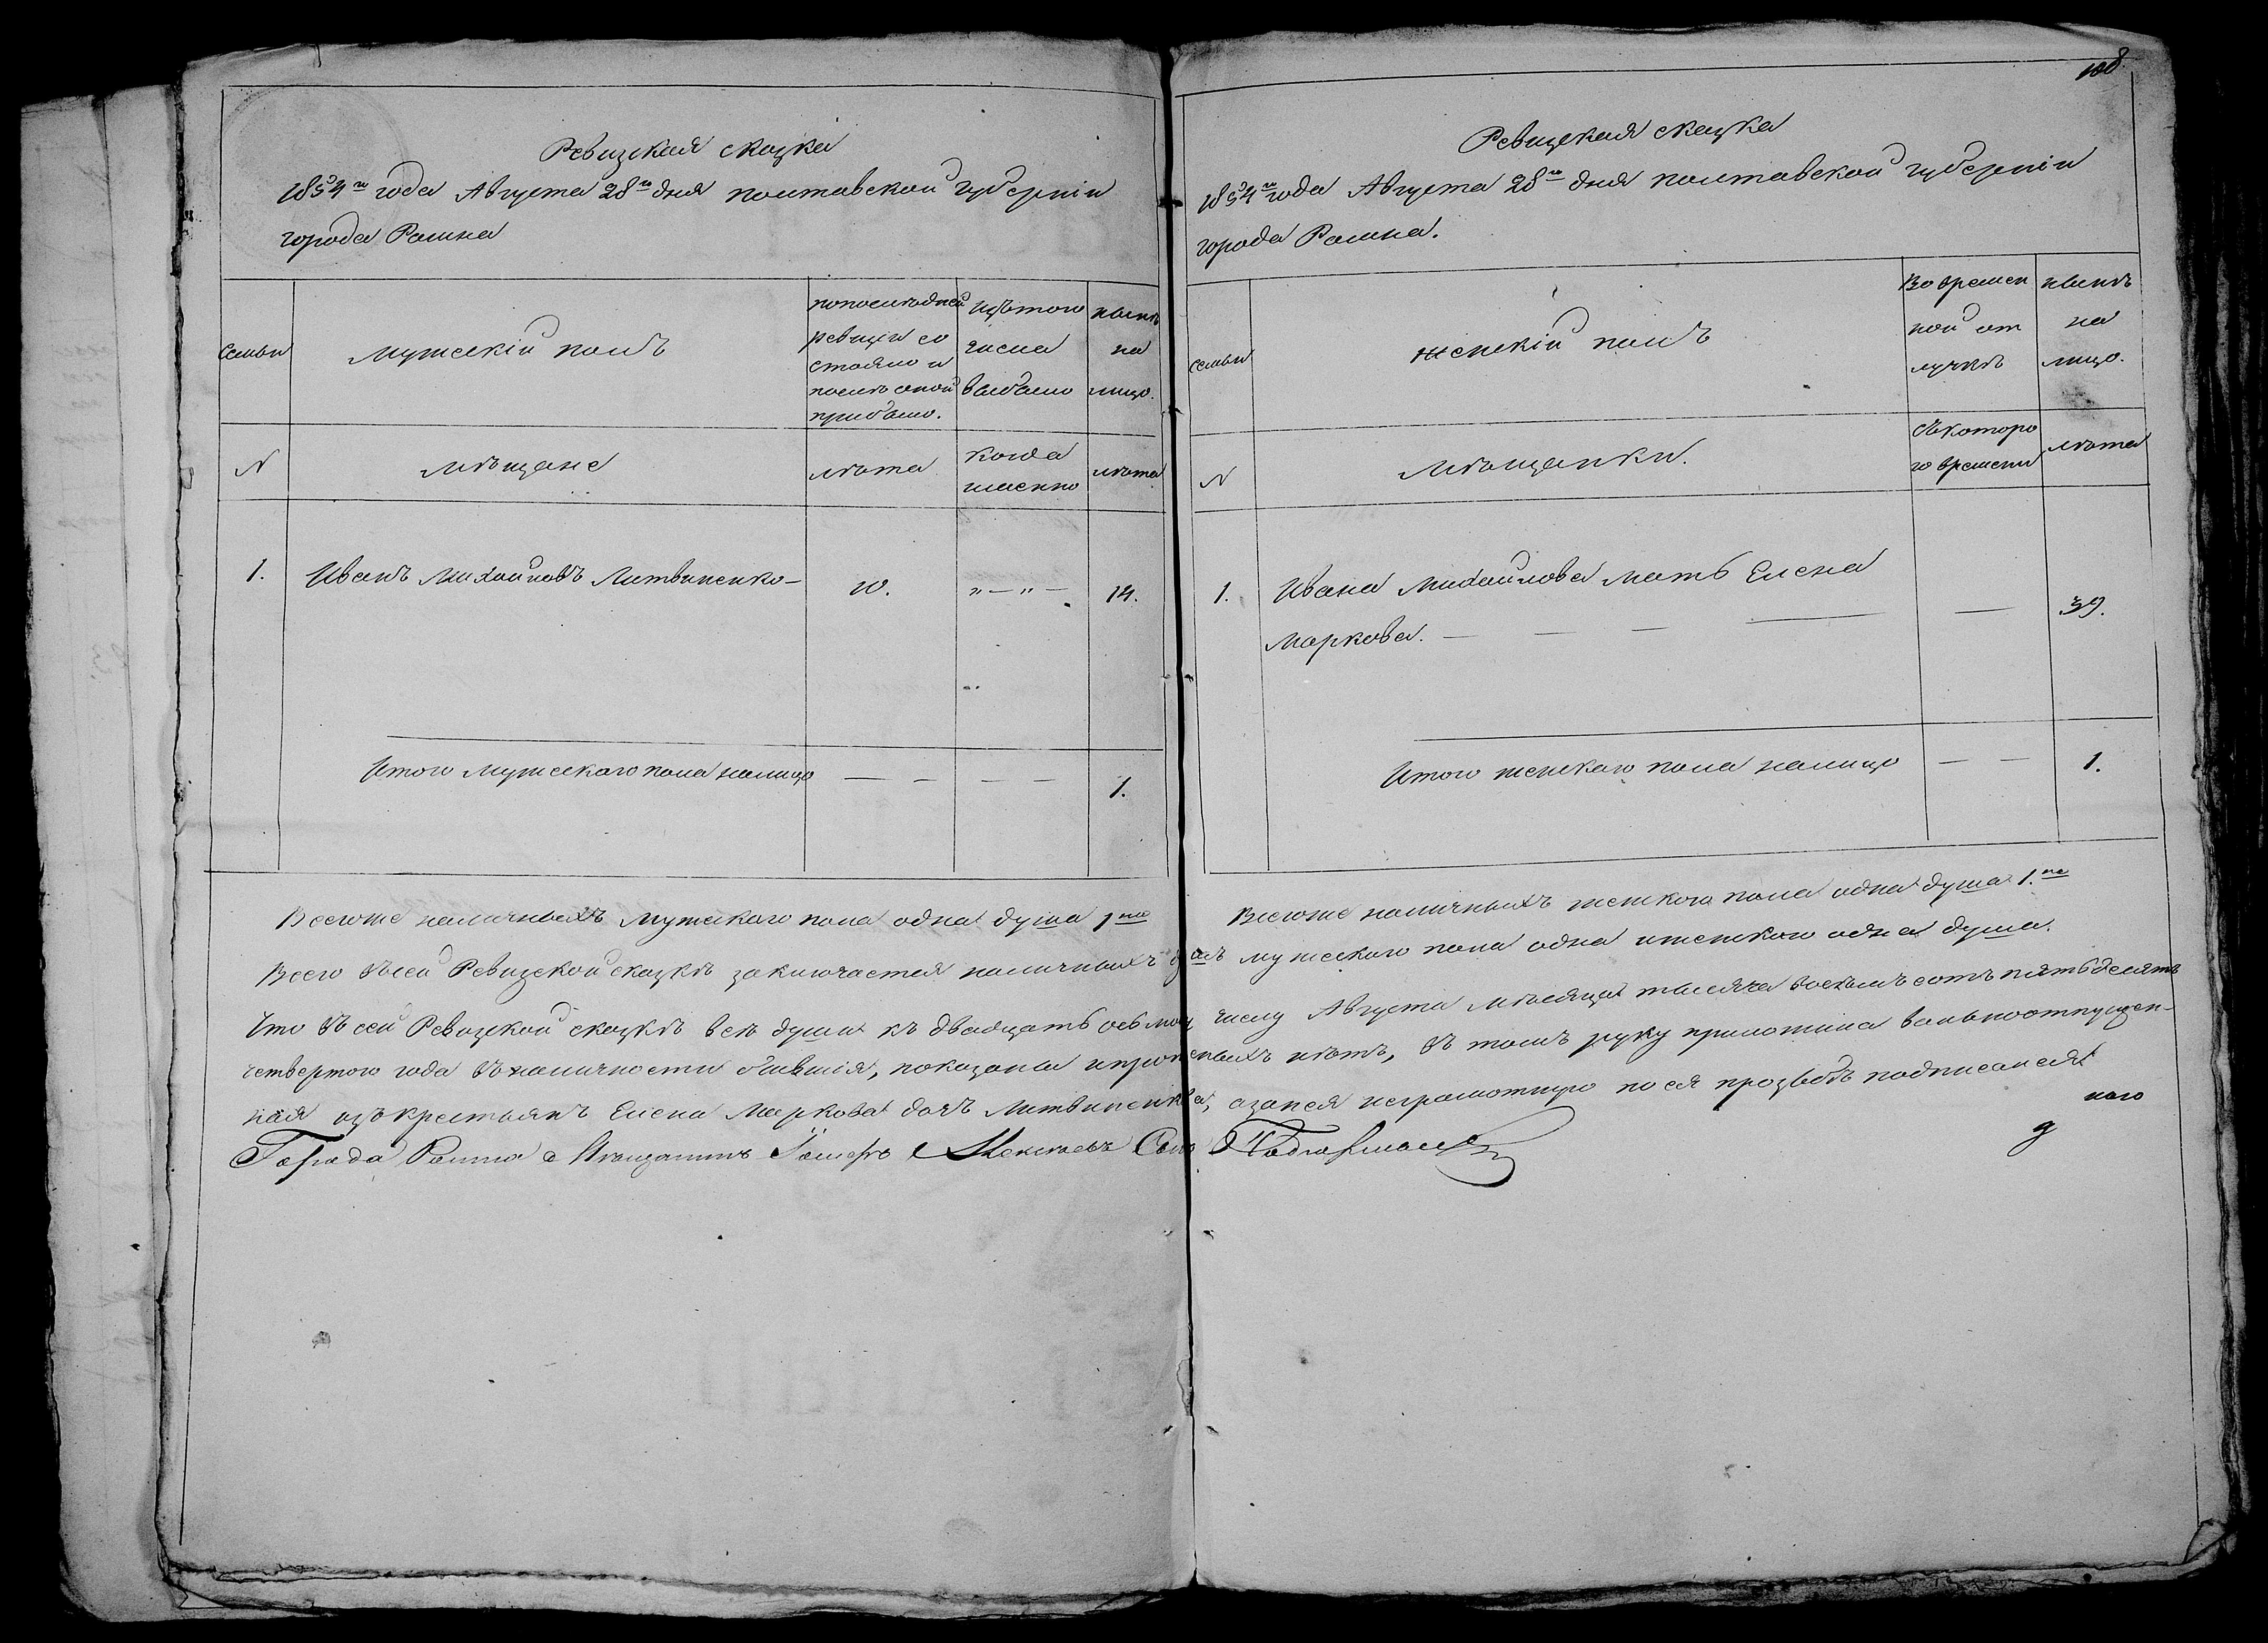 108
Ревизская сказка
1854го года Августа 28го дня полтавской губерніи
города Ромна
Семьи
Мужескій полъ
по последней
ревизіи со
стояло и
после оной
прибыло.
изъ того
числа
выбыло
ныне
на
лицо.
N
Мѣщане
лѣта
когда
именно
лѣта
1.
Иванъ Михайловъ Литвиненко —
10.
" — " —
14.
Итого мужескаго пола налицо — — — —
1.
Ревизская сказка
1854го года Августа 28го дня полтавской губерніи
города Ромна.
семьи
женскій полъ
Во времен
ной от
лучкѣ
нынѣ
на
лицо.
N
Мѣщанки.
Съ которо
го времени
лѣта
1.
Ивана Михайлова мать Елена
Маркова. — — — —
—
39.
Итого женскаго пола налицо — —
1.
Всегоже наличныхъ мужскаго пола одна душа 1на Всегоже наличныхъ женскаго пола одна душа 1.на
Всего въ сей Ревизской сказкѣ заключается наличныхъ душъ мужескаго пола одна и женского одна душа.
Что въ сей Ревизской сказкѣ все души къ двадцать осьмому числу Августа мѣсяца тысяча восемь сотъ пятьдесятъ
четвертого года въ наличности бывшія, показаны и прописныхъ нѣтъ, въ томъ руку приложила вольноотпущен-
ная изъ крестьянъ Елена Маркова дочь Литвиненкова, а за нея неграмотную по ея прозьбѣ подписался
Города Ромна Мѣщанинъ Алексѣевъ Сынъ